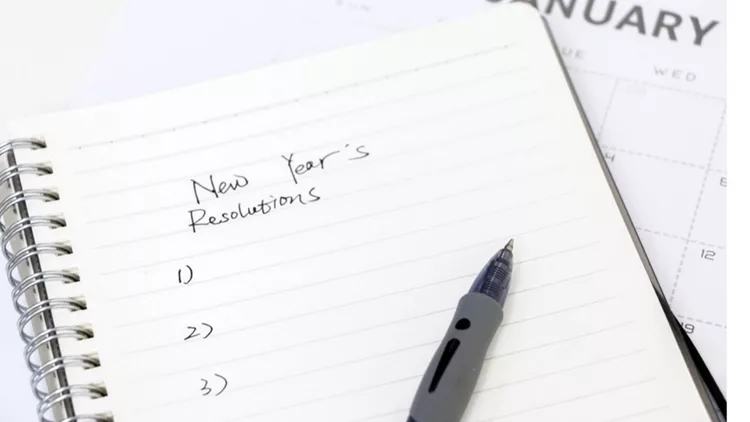 JANUARY
WED
4
12
19
New Year's
Resolutions
1)
2)
3)